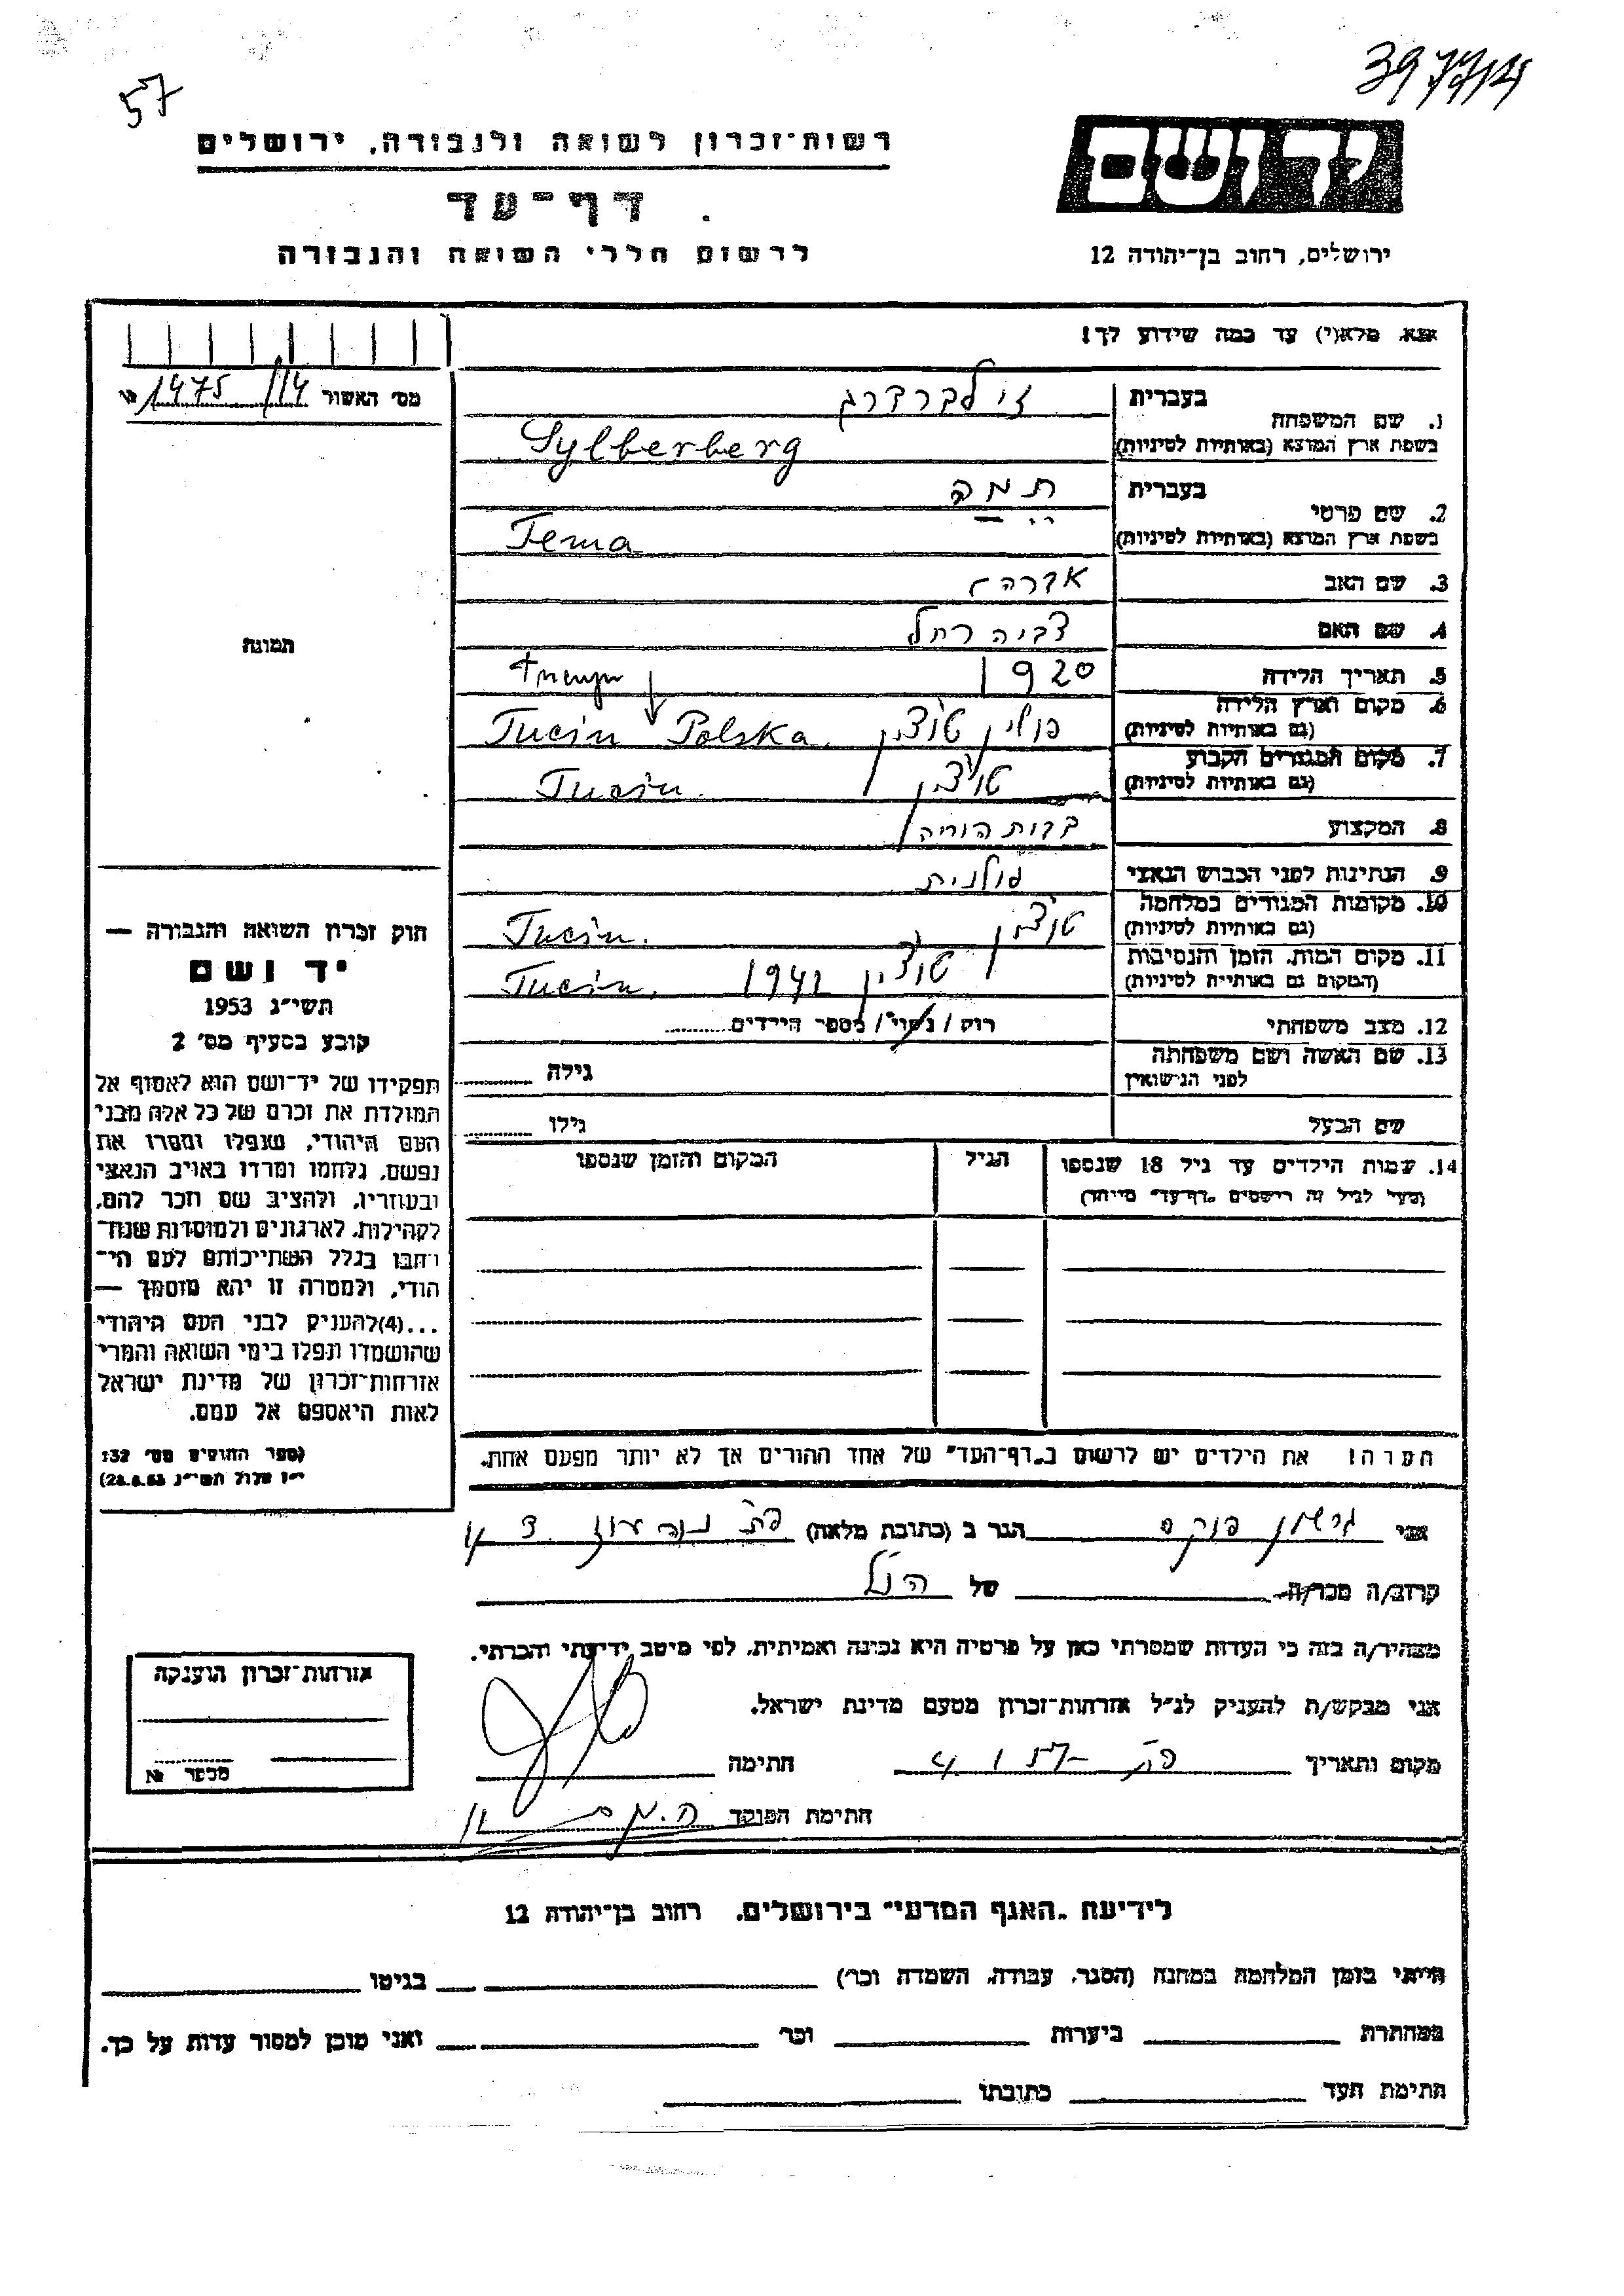 57
39774/14
רשות־זכרון לשואה ולגבורה, ירושלים
דף־עד
לרשום חללי השואה והגבורה
יד ושם
ירושלים, רחוב בן־יהודה 12
אנא, מלא(י) עד כמה שידוע לך!
מס׳ האשור 1475/14 №
תמונה
1. שם המשפחה
בעברית זילברברג
בשפת ארץ המוצא (באותיות לטיניות) Sylberberg
2. שם פרטי
בעברית תמה
בשפת ארץ המוצא (באותיות לטיניות) Tema
3. שם האב
4. שם האם צביה רחל
5. תאריך הלידה 1920
6. מקום וארץ הלידה
(גם באותיות לטיניות) פולין טוצ׳ין Polska Tucin
7. מקום המגורים הקבוע
(גם באותיות לטיניות) טוצ׳ין Tucin.
8. המקצוע בבית הוריה
9. הנתינות לפני הכבוש הנאצי פולנית
10. מקומות המגורים במלחמה
(גם באותיות לטיניות) טוצ׳ין Tucin.
11. מקום המות, הזמן והנסיבות
(המקום גם באותיות לטיניות) טוצ׳ין 1942 Tucin.
12. מצב משפחתי רוק / נשוי / מספר הילדים
13. שם האשה ושם משפחתה
לפני הנישואין גילה
שם הבעל גילו
14. שמות הילדים עד גיל 18 שנספו הגיל המקום והזמן שנספו
(מעל לגיל זה רושמים „דף־עד״ מיוחד)
הערה! את הילדים יש לרשום ב„דף־העד״ של אחד ההורים אך לא יותר מפעם אחת.
חוק זכרון השואה והגבורה —
יד ושם
תשי״ג 1953
קובע בסעיף מס׳ 2
תפקידו של יד־ושם הוא לאסוף אל
המולדת את זכרם של כל אלה מבני
העם היהודי, שנפלו ומסרו את
נפשם, נלחמו ומרדו באויב הנאצי
ובעוזריו, ולהציב שם וזכר להם,
לקהילות, לארגונים ולמוסדות שנח־
רבו בגלל השתייכותם לעם הי־
הודי, ולמטרה זו יהא מוסמך —
...(4) להעניק לבני העם היהודי
שהושמדו ונפלו בימי השואה והמרי
אזרחות־זכרון של מדינת ישראל
לאות היאספם אל עמם.
(ספר החוקים מס׳ 132
י״ז אלול תשי״ג 28.8.53)
אני גרשון פוקס הגר ב (כתובת מלאה)
קרוב/ה מכר/ה של הנ״ל
מצהיר/ה בזה כי העדות שמסרתי כאן על פרטיה היא נכונה ואמיתית, לפי מיטב ידיעתי והכרתי.
אני מבקש/ת להעניק לנ״ל אזרחות־זכרון מטעם מדינת ישראל.
מקום ותאריך חתימה
חתימת הפוקד
אזרחות־זכרון הוענקה
מספר №
לידיעת „האגף המדעי״ בירושלים, רחוב בן־יהודה 12
הייתי בזמן המלחמה במחנה (הסגר, עבודה, השמדה וכו׳) בגיטו
במחתרת ביערות וכו׳ ואני מוכן למסור עדות על כך.
חתימת העד כתובתו